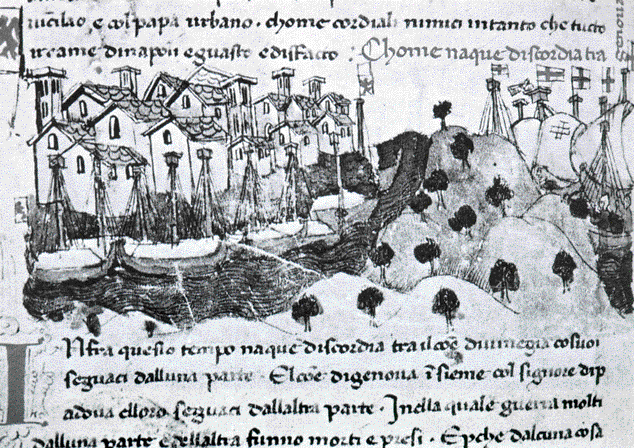 uicilao e col papa urbano · chome cordiali nimici in tanto che tucto
ireame dinapoli e guasto e disfacto : Chome naque discordia tra
Infra questo tempo naque discordia tra il coē diuinegia co suoi
seguaci dalluna parte · El coē digenoua īsieme col signore dip
adoua elloro seguaci dallaltra parte · Inella quale guerra molti
dalluna parte e dellaltra funno morti e presi · Epche dalcuna cosa